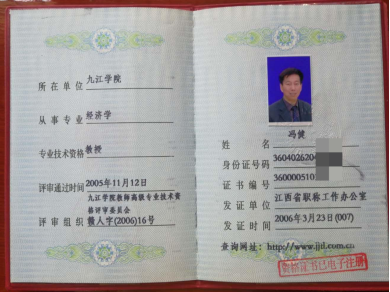 所在单位 九江学院
从事专业 经济学
专业技术资格 教授
评审通过时间 2005年11月12日
九江学院教师高级专业技术资
格评审委员会
评审组织 赣人字(2006)16号
姓名 冯健
身份证号码 3604026204
证书编号 360000510
发证单位 江西省职称工作办公室
发证时间 2006年3月23日(007)
查询网址:http://www.jjtl.com.cn
证书已电子注册